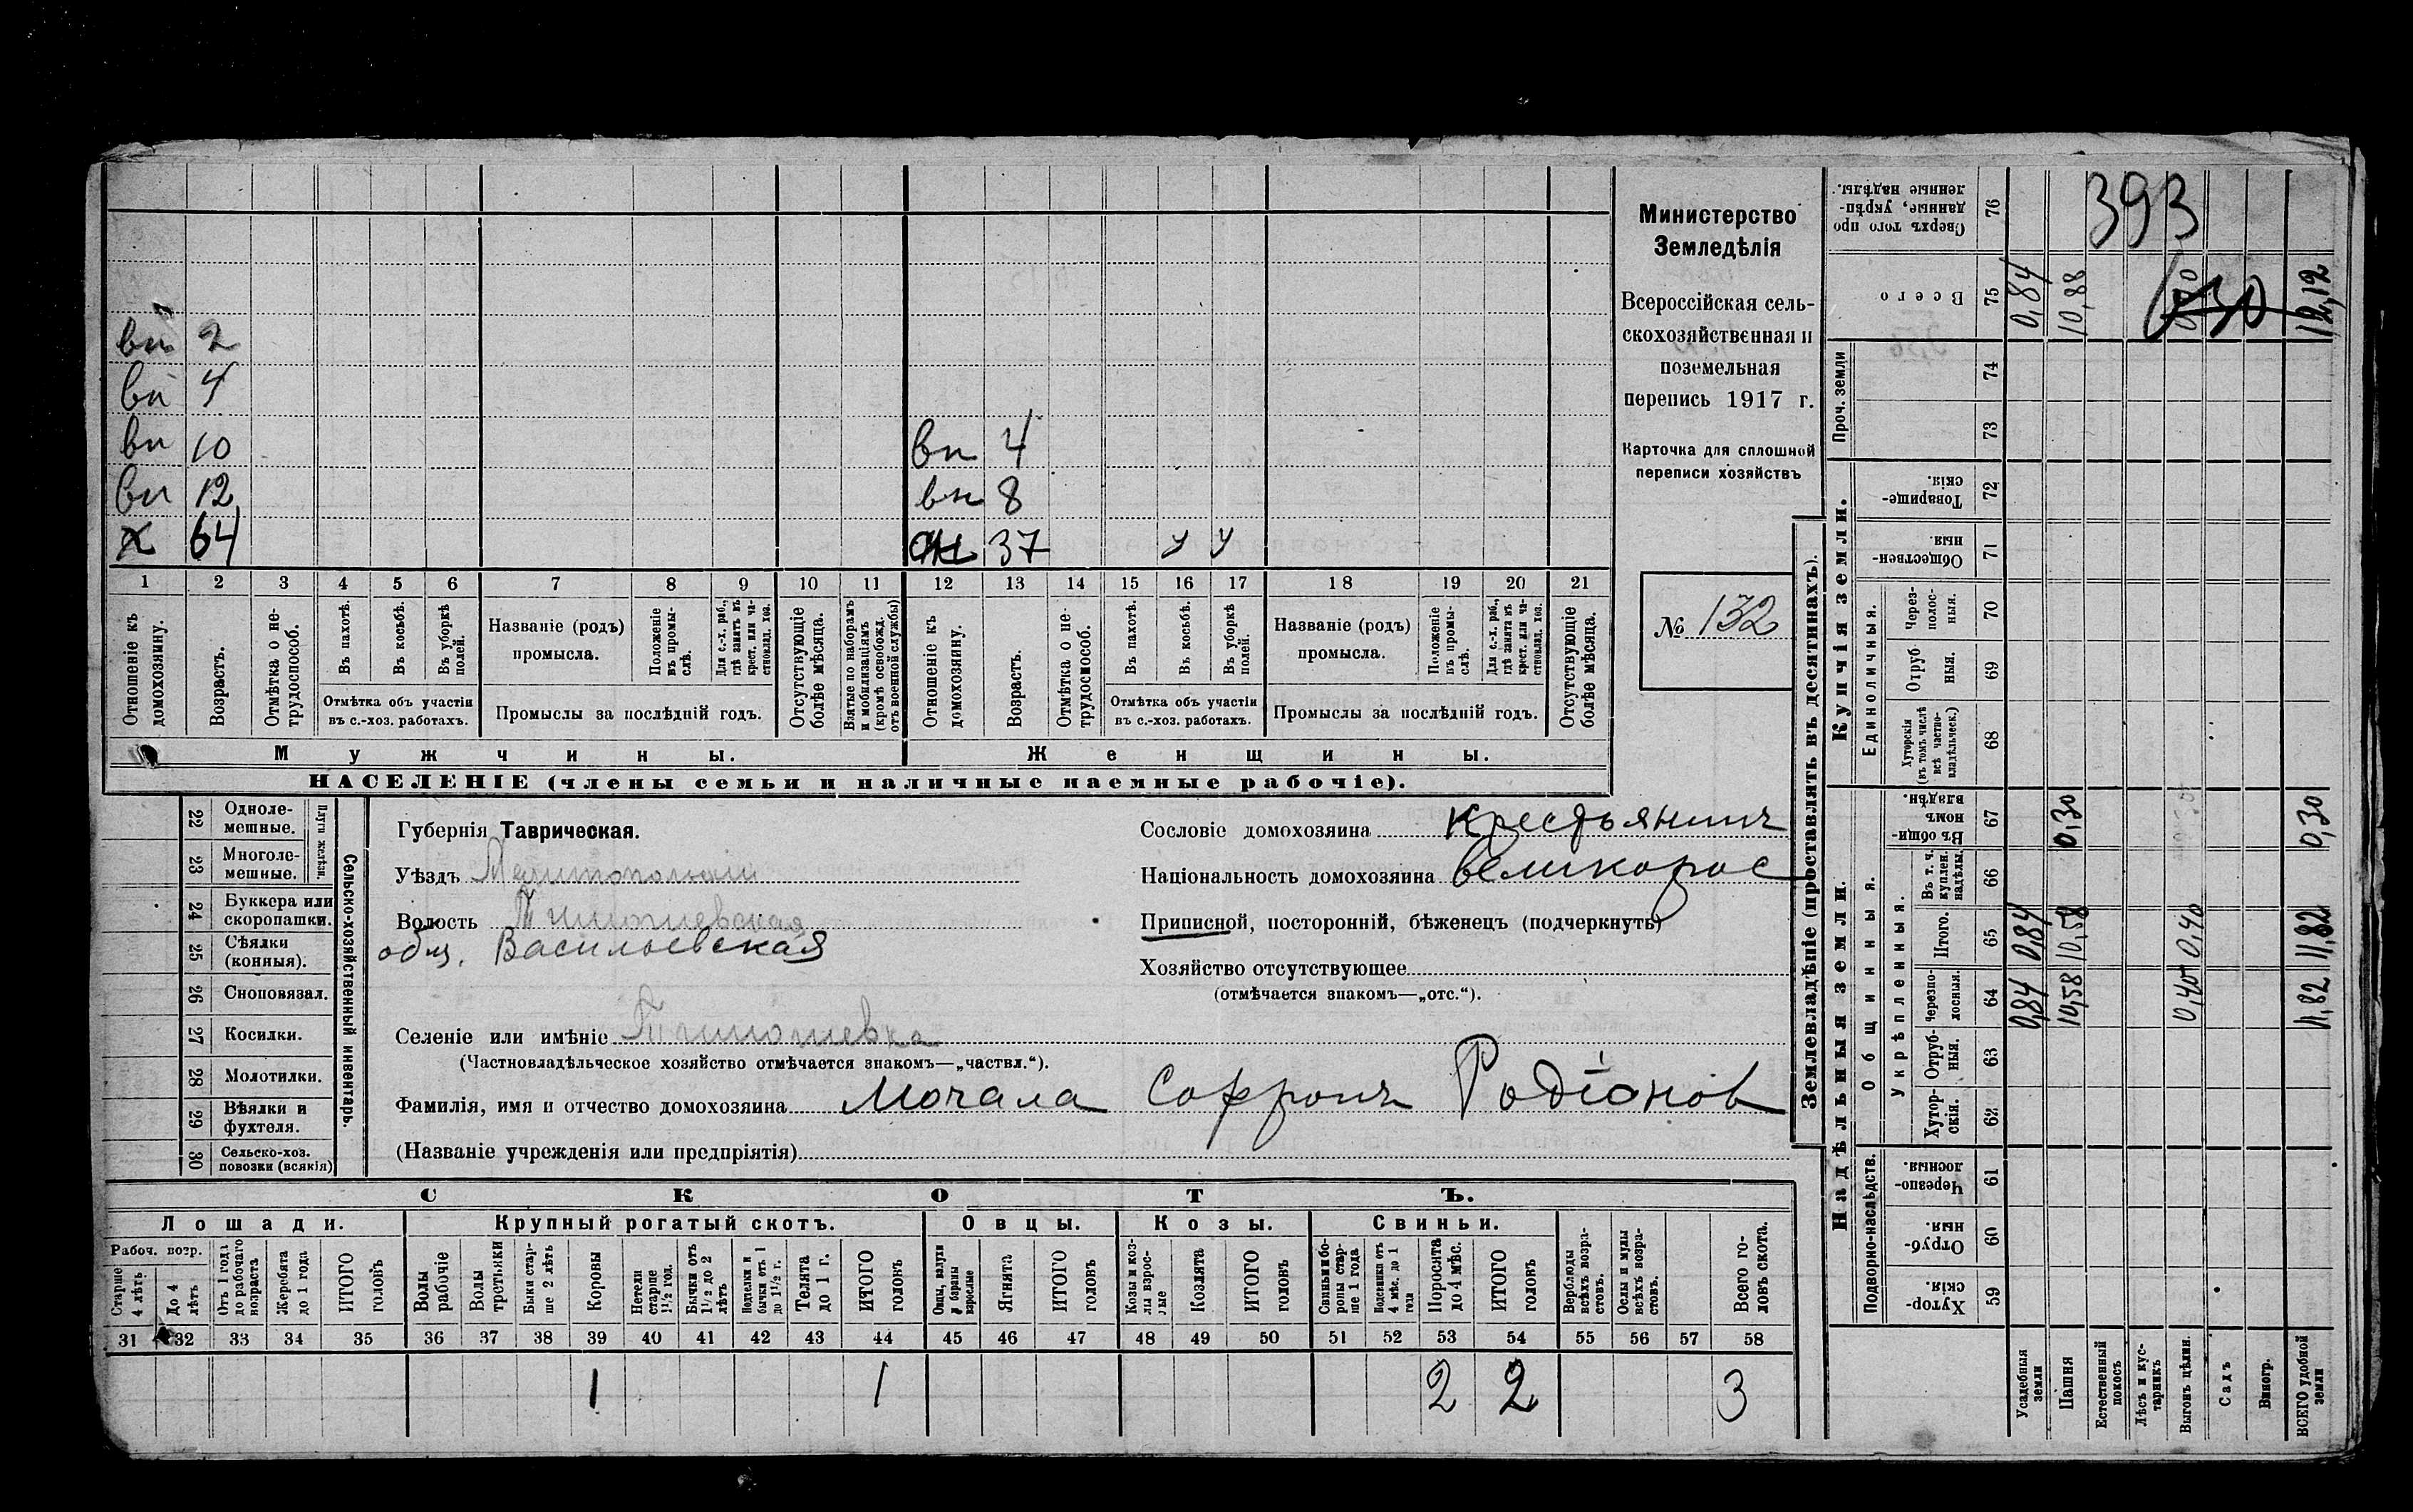 Министерство
Земледѣлія
Всероссійская сель-
скохозяйственная и
поземельная
перепись 1917 г.
Карточка для сплошной
переписи хозяйствъ
№ 132
393
вн 2
вн 4
вн 10 вн 4
вн 12 вн 8
х 64 37 у у
1 2 3 4 5 6 7 8 9 10 11 12 13 14 15 16 17 18 19 20 21
Отношеніе къ домохозяину.
Возрастъ.
Отмѣтка о не-трудоспособ.
Въ пахотѣ.
Въ косьбѣ.
Въ уборкѣ полей.
Отмѣтка объ участіи
въ с.-хоз. работахъ.
Названіе (родъ)
промысла.
Положеніе въ промы-слѣ.
Для с.-х. раб., гдѣ занятъ въ крест. или ча-стновлад. хоз.
Промыслы за послѣдній годъ.
Отсутствующіе болѣе мѣсяца.
Взятые по наборамъ и мобилизаціямъ (кромѣ освобожд. отъ военной службы)
Отношеніе къ домохозяину.
Возрастъ.
Отмѣтка о не-трудоспособ.
Въ пахотѣ.
Въ косьбѣ.
Въ уборкѣ полей.
Отмѣтка объ участіи
въ с.-хоз. работахъ.
Названіе (родъ)
промысла.
Положеніе въ промы-слѣ.
Для с.-х. раб., гдѣ занята въ крест. или ча-стновлад. хоз.
Промыслы за послѣдній годъ.
Отсутствующіе болѣе мѣсяца.
Мужчины. Женщины.
НАСЕЛЕНІЕ (члены семьи и наличные наемные рабочіе).
22 Одноле-мешные.
23 Многоле-мешные.
Плуги желѣзн.
24 Буккера или скоропашки.
25 Сѣялки (конныя).
26 Сноповязал.
27 Косилки.
28 Молотилки.
29 Вѣялки и фухтеля.
30 Сельско-хоз. повозки (всякія)
Сельско-хозяйственный инвентарь.
Губернія Таврическая.
Уѣздъ Мелитопольскій
Волость Тимошевская
общ. Васильевская
Селеніе или имѣніе Тимошевка
(Частновладѣльческое хозяйство отмѣчается знакомъ—„частвл.“).
Фамилія, имя и отчество домохозяина Мочала Софронъ Родіонов
(Названіе учрежденія или предпріятія)
Сословіе домохозяина крестьянинъ
Національность домохозяина великорос
Приписной, посторонній, бѣженецъ (подчеркнуть)
Хозяйство отсутствующее
(отмѣчается знакомъ—„отс.“).
СКОТЪ.
Лошади. Крупный рогатый скотъ. Овцы. Козы. Свиньи.
Рабоч. возр.
Старше 4 лѣтъ
До 4 лѣтъ
Отъ 1 года до рабочаго возраста
Жеребята до 1 года
ИТОГО головъ
Волы рабочіе
Волы третьяки
Быки стар-ше 2 лѣтъ
Коровы
Нетели старше 1½ год.
Бычки отъ 1½ до 2 лѣтъ
Подтелки и бычки отъ 1 до 1½ г.
Телята до 1 г.
ИТОГО головъ
Овцы, валухи и бараны взрослые
Ягнята
ИТОГО головъ
Козы и коз-лы взрос-лые
Козлята
ИТОГО головъ
Свиньи и бо-ровы стар-ше 1 года
Подсвинки отъ 4 мѣс. до 1 года
Поросята до 4 мѣс.
ИТОГО головъ
Верблюды всѣхъ возра-стовъ.
Ослы и мулы всѣхъ возра-стовъ.
Всего го-ловъ скота.
31 32 33 34 35 36 37 38 39 40 41 42 43 44 45 46 47 48 49 50 51 52 53 54 55 56 57 58
1 1 2 2 3
Землевладѣніе (проставлять въ десятинахъ).
Надѣльныя земли. Купчія земли. Проч. земли
Подворно-наслѣдств.
Общинныя.
Укрѣпленныя.
Единоличныя.
Хутор-скія. 59
Отруб-ныя. 60
Черезпо-лосныя. 61
Хутор-скія. 62
Отруб-ныя. 63
Черезпо-лосныя. 64
Итого. 65
Въ т. ч. куплен. надѣлы. 66
Въ общи-номъ владѣн. 67
Хуторскія (въ томъ числѣ всѣ частно-владѣльческ.) 68
Отруб-ныя. 69
Через-полос-ныя. 70
Обществен-ныя 71
Товарище-скія. 72
73
74
Всего 75
Сверхъ того про-данные, укрѣп-ленные надѣлы. 76
Усадебныя земли 0,84 0,84 0,84
Пашня 10,58 10,58 0,30 10,88
Естественный покосъ
Лѣсъ и кус-тарникъ
Выгонъ цѣлин. 0,40 0,40
Садъ
Виногр.
ВСЕГО удобной земли 11,82 11,82 0,30 12,12